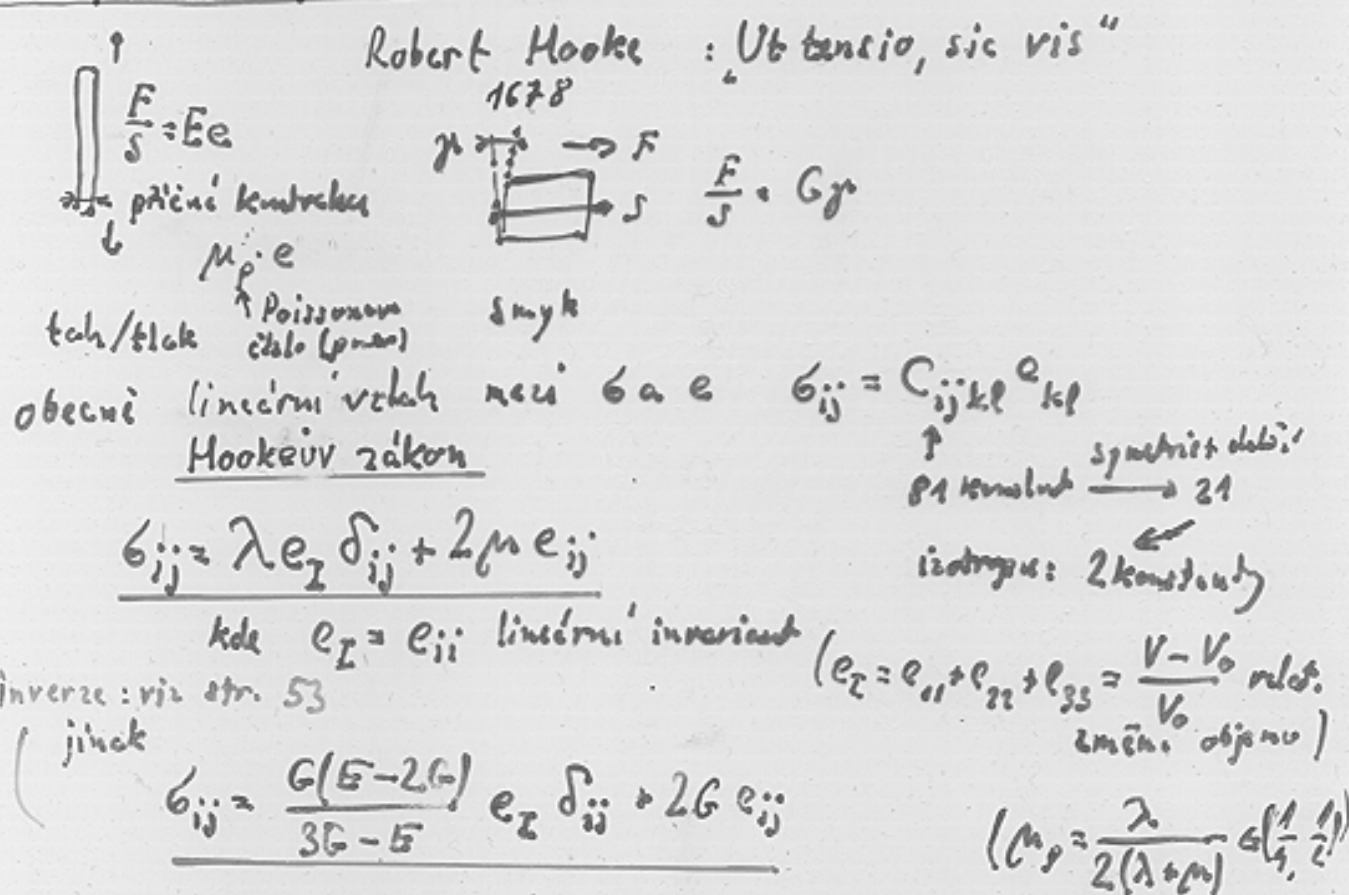 Robert Hooke : „Ut tensio, sic vis“
1678
F/S = Ee
γ → F
S
F/S = Gγ
příčná kontrakce
μ_p · e
↑ Poissonovo číslo (poměr)
smyk
tah/tlak
obecně lineární vztah mezi σ a e σ_ij = C_ijkl e_kl
Hookeův zákon
↑
81 konstant → 21
σ_ij = λ e_I δ_ij + 2μ e_ij
izotropie: 2 konstanty
kde e_I = e_ii lineární invariant
(e_I = e_11 + e_22 + e_33 = (V − V_0)/V_0 relat. změna objemu)
inverze: viz str. 53
( jinak
σ_ij = G(E−2G)/(3G−E) e_I δ_ij + 2G e_ij
(μ_p = λ/(2(λ+μ)) ∈ (1/4, 1/2)